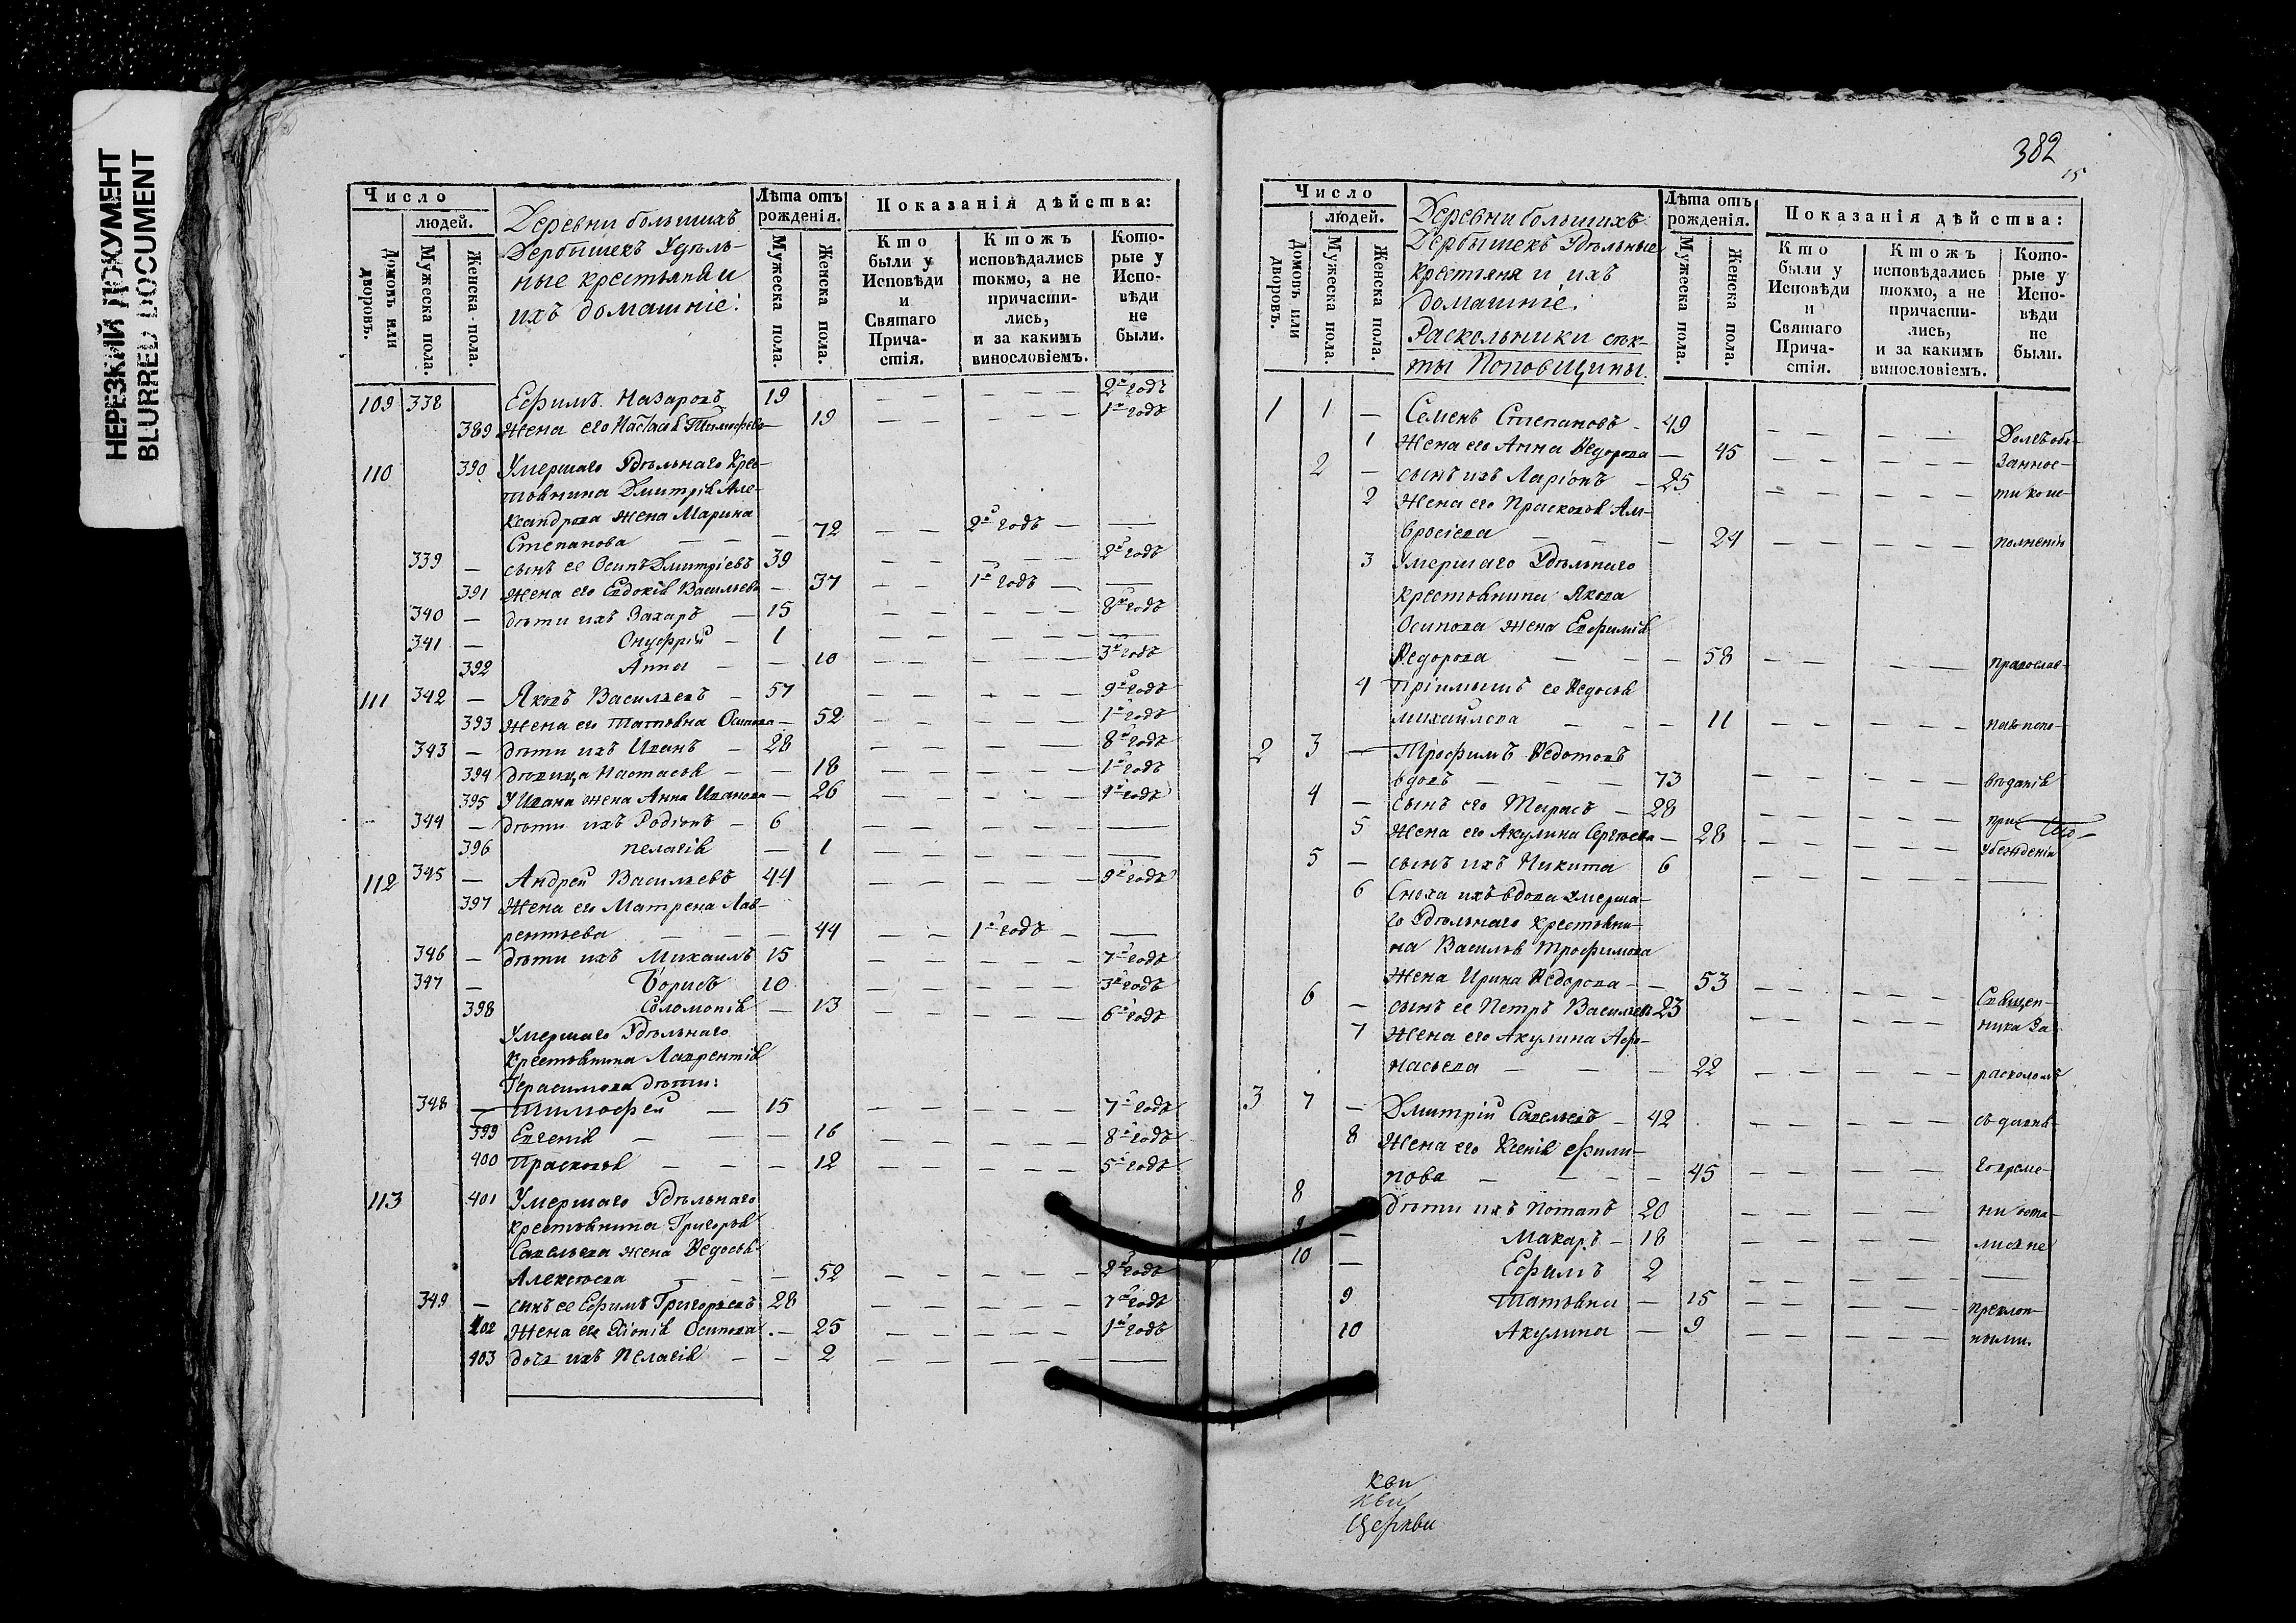 НЕРЕЗКИЙ ДОКУМЕНТ
BLURRED DOCUMENT
Число
людей.
Домовъ или дворовъ.
Мужеска пола.
Женска пола.
Деревни большихъ
Дербышекъ Удѣль-
ные крестьяне и
ихъ домашніе:
Лѣта отъ рожденія.
Мужеска пола.
Женска пола.
Показанія дѣйства:
Кто были у Исповѣди и Святаго Прича-стія.
Ктожъ исповѣдались токмо, а не причасти-лись, и за какимъ винословіемъ.
Кото-рые у Испо-вѣди не были.
109 338 Ефимъ Назаровъ 19 — — — — — 2й годъ
389 Жена его Настасья Тимофѣева — 19 — — — — — 1й годъ
110 390 Умершаго Удѣльнаго Крес-
тьянина Дмитрія Але-
ксандрова жена Марина
Степанова — — — 72 — — 2й годъ — —
339 — сынъ ее Осипъ Дмитріевъ 39 — — — 2й годъ
391 Жена его Евдокія Васильева — 37 — — 1й годъ — —
340 — дѣти ихъ Захаръ — 15 — — — — — 8й годъ
341 — Онуфрій — 1 — — — — — —
392 Анна — — 10 — — — — — 3й годъ
111 342 — Яковъ Васильевъ — 57 — — — — — 9й годъ
393 Жена его Татьяна Осипова — 52 — — — — — 1й годъ
343 — дѣти ихъ Иванъ — 28 — — — — — 8й годъ
394 дѣвица Настасья — — 18 — — — — — 1й годъ
395 У Ивана жена Анна Иванова — 26 — — — — — 1й годъ
344 — дѣти ихъ Родіонъ — 6 — — — — — —
396 Пелагія — 1 — — — — — —
112 345 — Андрей Васильевъ 44 — — — — — 9й годъ
397 Жена его Матрена Лав-
рентьева — — — 44 — — 1й годъ — —
346 — дѣти ихъ Михаилъ 15 — — — — — 7й годъ
347 — Борисъ 10 — — — — — 3й годъ
398 Соломонія — 13 — — — — — 6й годъ
Умершаго Удѣльнаго
Крестьянина Лаврентія
Герасимова дѣти:
348 — Тимофей — 15 — — — — — 7й годъ
399 Евгенія — — — 16 — — — — — 8й годъ
400 Прасковья — — — 12 — — — — — 5й годъ
113 401 Умершаго Удѣльнаго
крестьянина Григорья
Савельева жена Ѳедосья
Алексѣева — — — 52 — — — — — 2й годъ
349 — сынъ ее Ефимъ Григорьевъ 28 — — — — — 7й годъ
402 Жена его Хіонія Осипова — 25 — — — — — 1й годъ
403 дочь ихъ Пелагія — — 2 — — — — — —
382
15
Число
людей.
Домовъ или дворовъ.
Мужеска пола.
Женска пола.
Деревни большихъ
Дербышекъ Удѣльные
крестьяня и ихъ
домашніе:
Раскольники сек-
ты Поповщины
Лѣта отъ рожденія.
Мужеска пола.
Женска пола.
Показанія дѣйства:
Кто были у Исповѣди и Святаго Прича-стія.
Ктожъ исповѣдались токмо, а не причасти-лись, и за какимъ винословіемъ.
Кото-рые у Испо-вѣди не были.
1 1 — Семенъ Степановъ — 49 — — — — Долгъ обя-
1 Жена его Анна Ѳедорова — 45 — — — — занное-
2 — сынъ ихъ Ларіонъ — 25 — — — — ти коис-
2 Жена его Прасковья Ам-
вросіева — — — 24 — — — — полненія
3 Умершаго Удѣльнаго
крестьянина Якова
Осипова жена Евфимія
Ѳедорова — — — 58 — — — — православ-
4 Пріимышъ ее Ѳедосья
Михайлова — — — 11 — — — — наго испо-
2 3 — Трофимъ Ѳедотовъ
вдовъ — — 73 — — — — вѣданія
4 — Сынъ его Тарасъ — 28 — — — — при
5 Жена его Акулина Сергѣева — 28 — — — — убежденіи
5 — сынъ ихъ Никита 6 — — — — —
6 Сноха ихъ вдова умерша-
го Удѣльнаго крестьяни-
на Василья Трофимова
Жена Ирина Ѳедорова — — 53 — — — — Священ-
6 — сынъ ее Петръ Васильевъ 23 — — — — ника за
7 Жена его Акулина Афо-
насьева — — — 22 — — — — расколомъ
3 7 — Дмитрій Савельевъ — 42 — — — — съ давня-
8 Жена его Ксенія Фили-
пова — — — 45 — — — — го време-
8 — дѣти ихъ Романъ 20 — — — — ни оста-
9 — Макаръ — 18 — — — — лись не
10 — Ефимъ 2 — — — — —
9 Татьяна — 15 — — — — преклон-
10 Акулина — 9 — — — — ными.
кви
кви
Церкви